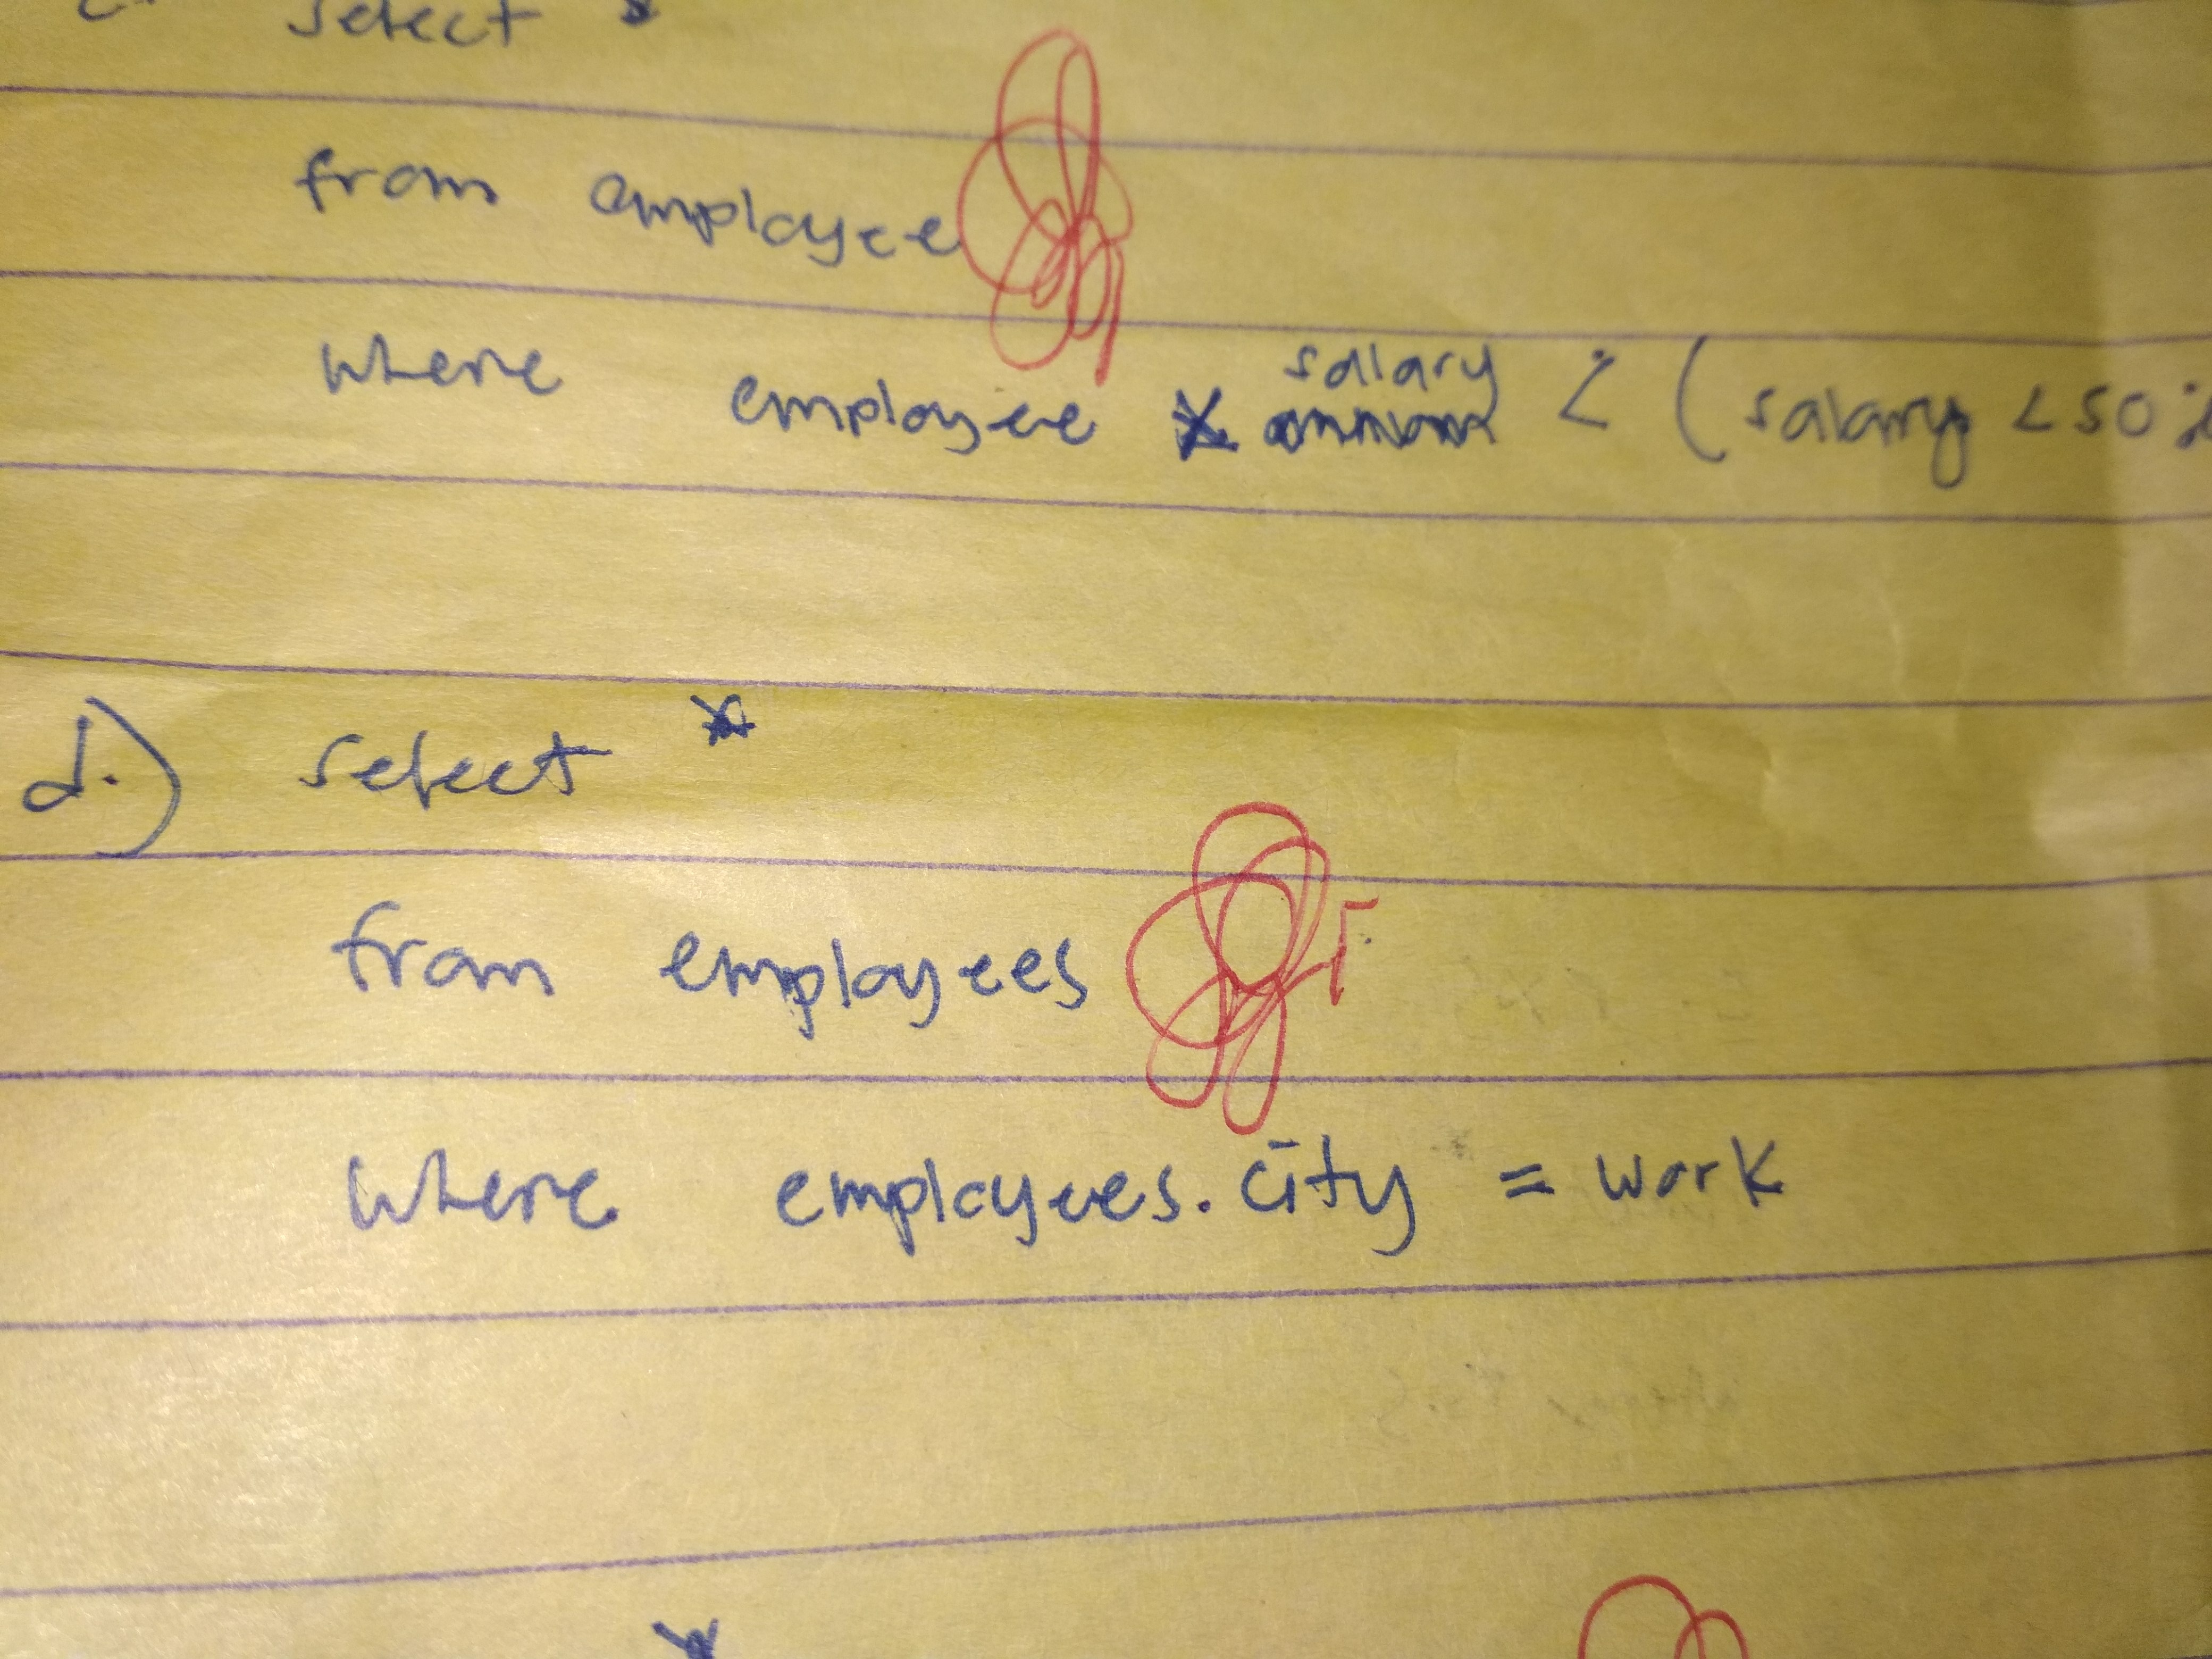 c. Select *
from employee
where employee salary < (salary < 50%
d.) Select *
from employees
where employees.city = work
*